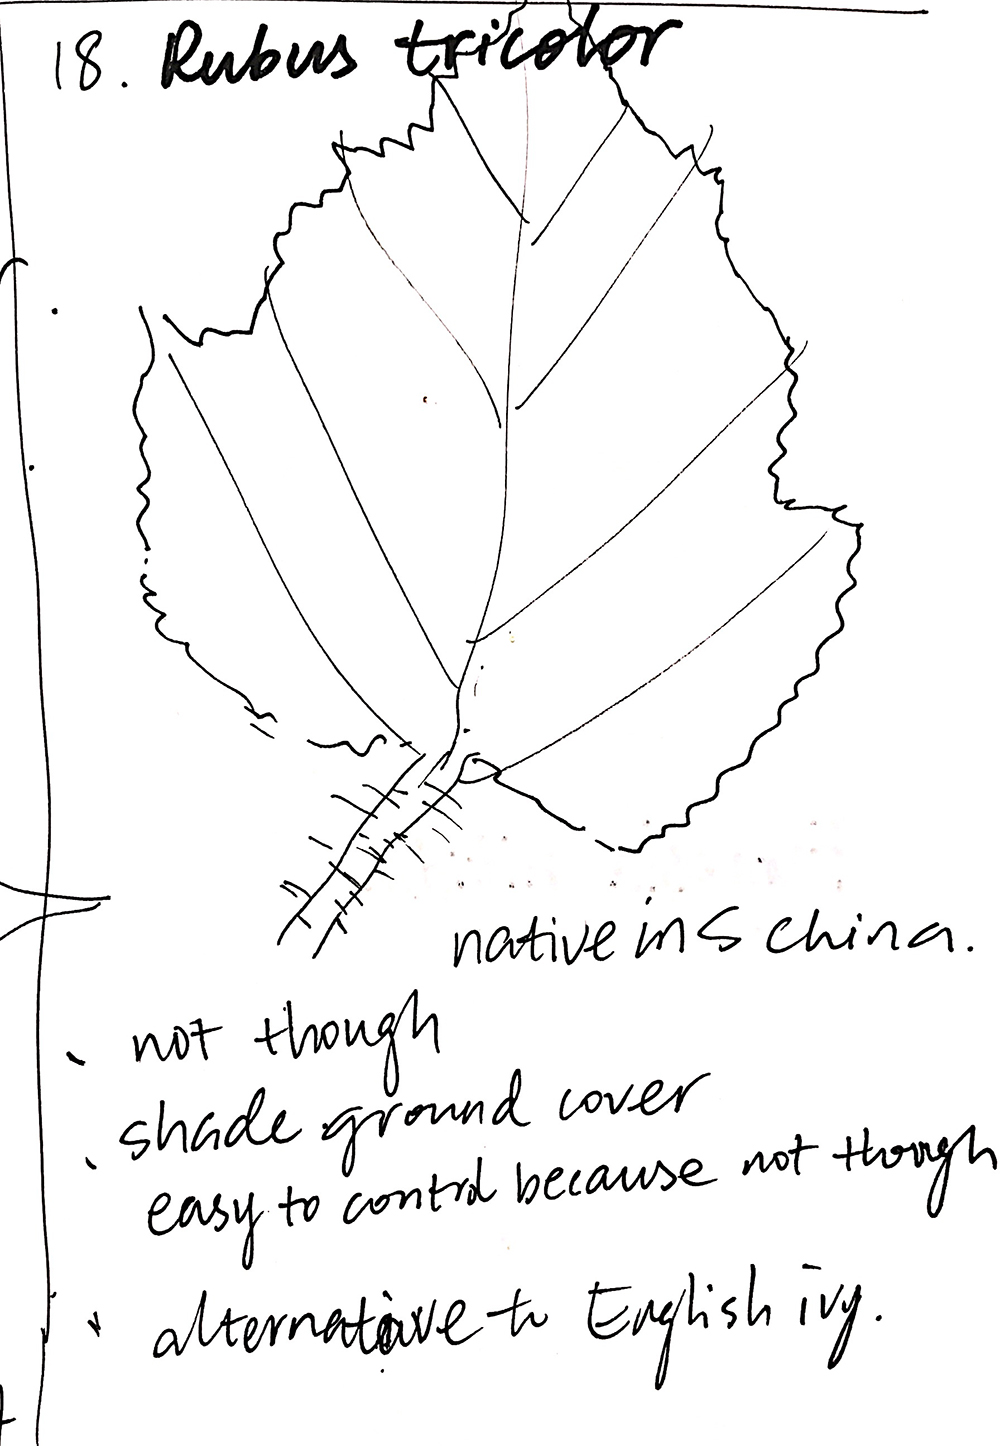 18. Rubus tricolor
native in S china.
not though
shade ground cover
easy to control because not though
alternative to English ivy.